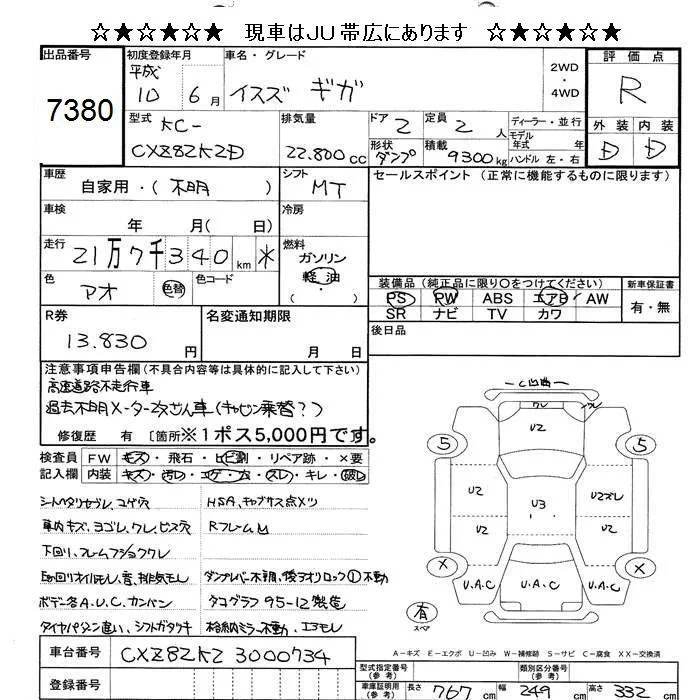 ☆★☆★☆★ 現車はJU帯広にあります ☆★☆★☆★
出品番号 初度登録年月 車名・グレード 2WD・4WD 評価点
7380 平成 10 6月 イスズ ギガ R
型式 KC- 排気量 ドア 2 定員 2人 ディーラー・並行 外装 内装
CXZ82K2D 22.800cc 形状 ダンプ 積載 9300kg モデル年式 年 ハンドル 左・右 D D
車歴 自家用・(不明) シフト MT セールスポイント (正常に機能するものに限ります)
車検 年 月(日) 冷房
走行 21万7千340km * 燃料 ガソリン 軽油 ( )
色 アオ 色替 色コード
装備品 (純正品に限り○をつけてください) 新車保証書
PS PW ABS エアB AW 有・無
SR ナビ TV カワ
R券 13.830円 名変通知期限 月 日 後日品
注意事項申告欄 (不具合内容等は具体的に記入して下さい)
高速道路不走行車
過去不明メーター改ざん車(キャビン乗替?)
修復歴 有 〔箇所※1ポス5,000円です。
検査員 FW キズ・飛石・ヒビ割・リペア跡・×要
記入欄 内装 キズ・汚レ・コゲ・穴・スレ・キレ・破レ
シートヘタリセブレ、コゲ穴 HSA、キャブサス点メツ
車内キズ、ヨゴレ、ワレ、ビス穴 Rフレーム
下回り、フレームフショクワレ
Eg回りオイルモレ、音、排気モレ ダンプレバー不調、後アオリロック①不動
ボデー各A.U.C.カンバン タコグラフ 95-12製造
タイヤパタン違い、シフトガタツキ 格納ミラー不動、エアモレ
C凹曲
ワレ ワレ
U2
5 5
U2 U3 U2ズレ
U2 U2
× ×
U.A.C U.A.C U.A.C
有 スペア
A-キズ E-エクボ U-凹み W-補修跡 S-サビ C-腐食 XX-交換済
車台番号 CXZ82K2 3000734
登録番号
型式指定番号 (参考) 類別区分番号 (参考)
車庫証明用 (参考) 長さ 767cm 幅 249cm 高さ 332cm